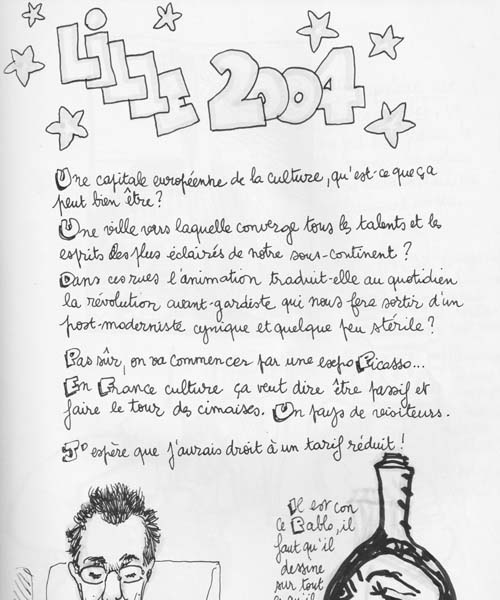 LILLE 2004
Une capitale européenne de la culture, qu'est-ce que ça
peut bien être?
Une ville vers laquelle converge tous les talents et les
esprits des plus éclairés de notre sous-continent?
Dans ces rues l'animation traduit-elle au quotidien
la révolution avant-gardiste qui nous fera sortir d'un
post-moderniste cynique et quelque peu stérile?
Pas sûr, on va commencer par une expo Picasso...
En France culture ça veut dire être passif et
faire le tour des cimaises. Un pays de visiteurs.
J'espère que j'aurais droit à un tarif réduit!
Il est con
ce Pablo, il
faut qu'il
dessine
sur tout
ce qu'il